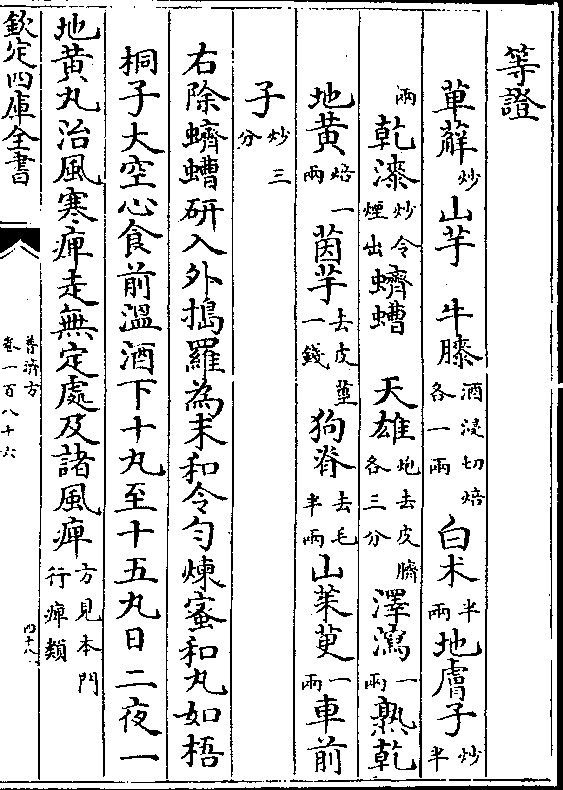 等證
萆薢炒山芋 牛膝酒浸切焙各一兩白术半兩地膚子炒半
兩乾漆炒令煙出蠐螬 天雄炮去皮臍各三分澤瀉一兩熟乾
地黄焙一兩茵芋去皮莖一錢狗脊去毛半兩山茱萸一兩車前
子炒三分
右除蠐螬研入外搗羅為末和令勻煉蜜和丸如梧
桐子大空心食前溫酒下十丸至十五丸日二夜一
地黄丸治風寒痺走無定處及諸風痺方見本門行痺類
欽定四庫全書
普濟方
卷一百八十六
四十八